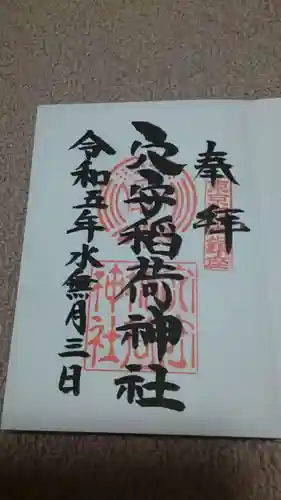 奉拝
穴守稲荷神社
令和五年水無月三日